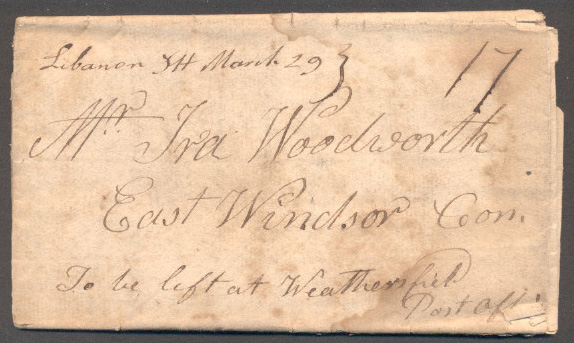 Lebanon NH March 29 } 17
Mr Ira Woodworth
East Windsor Con.
To be left at Weathersfield
Post Off